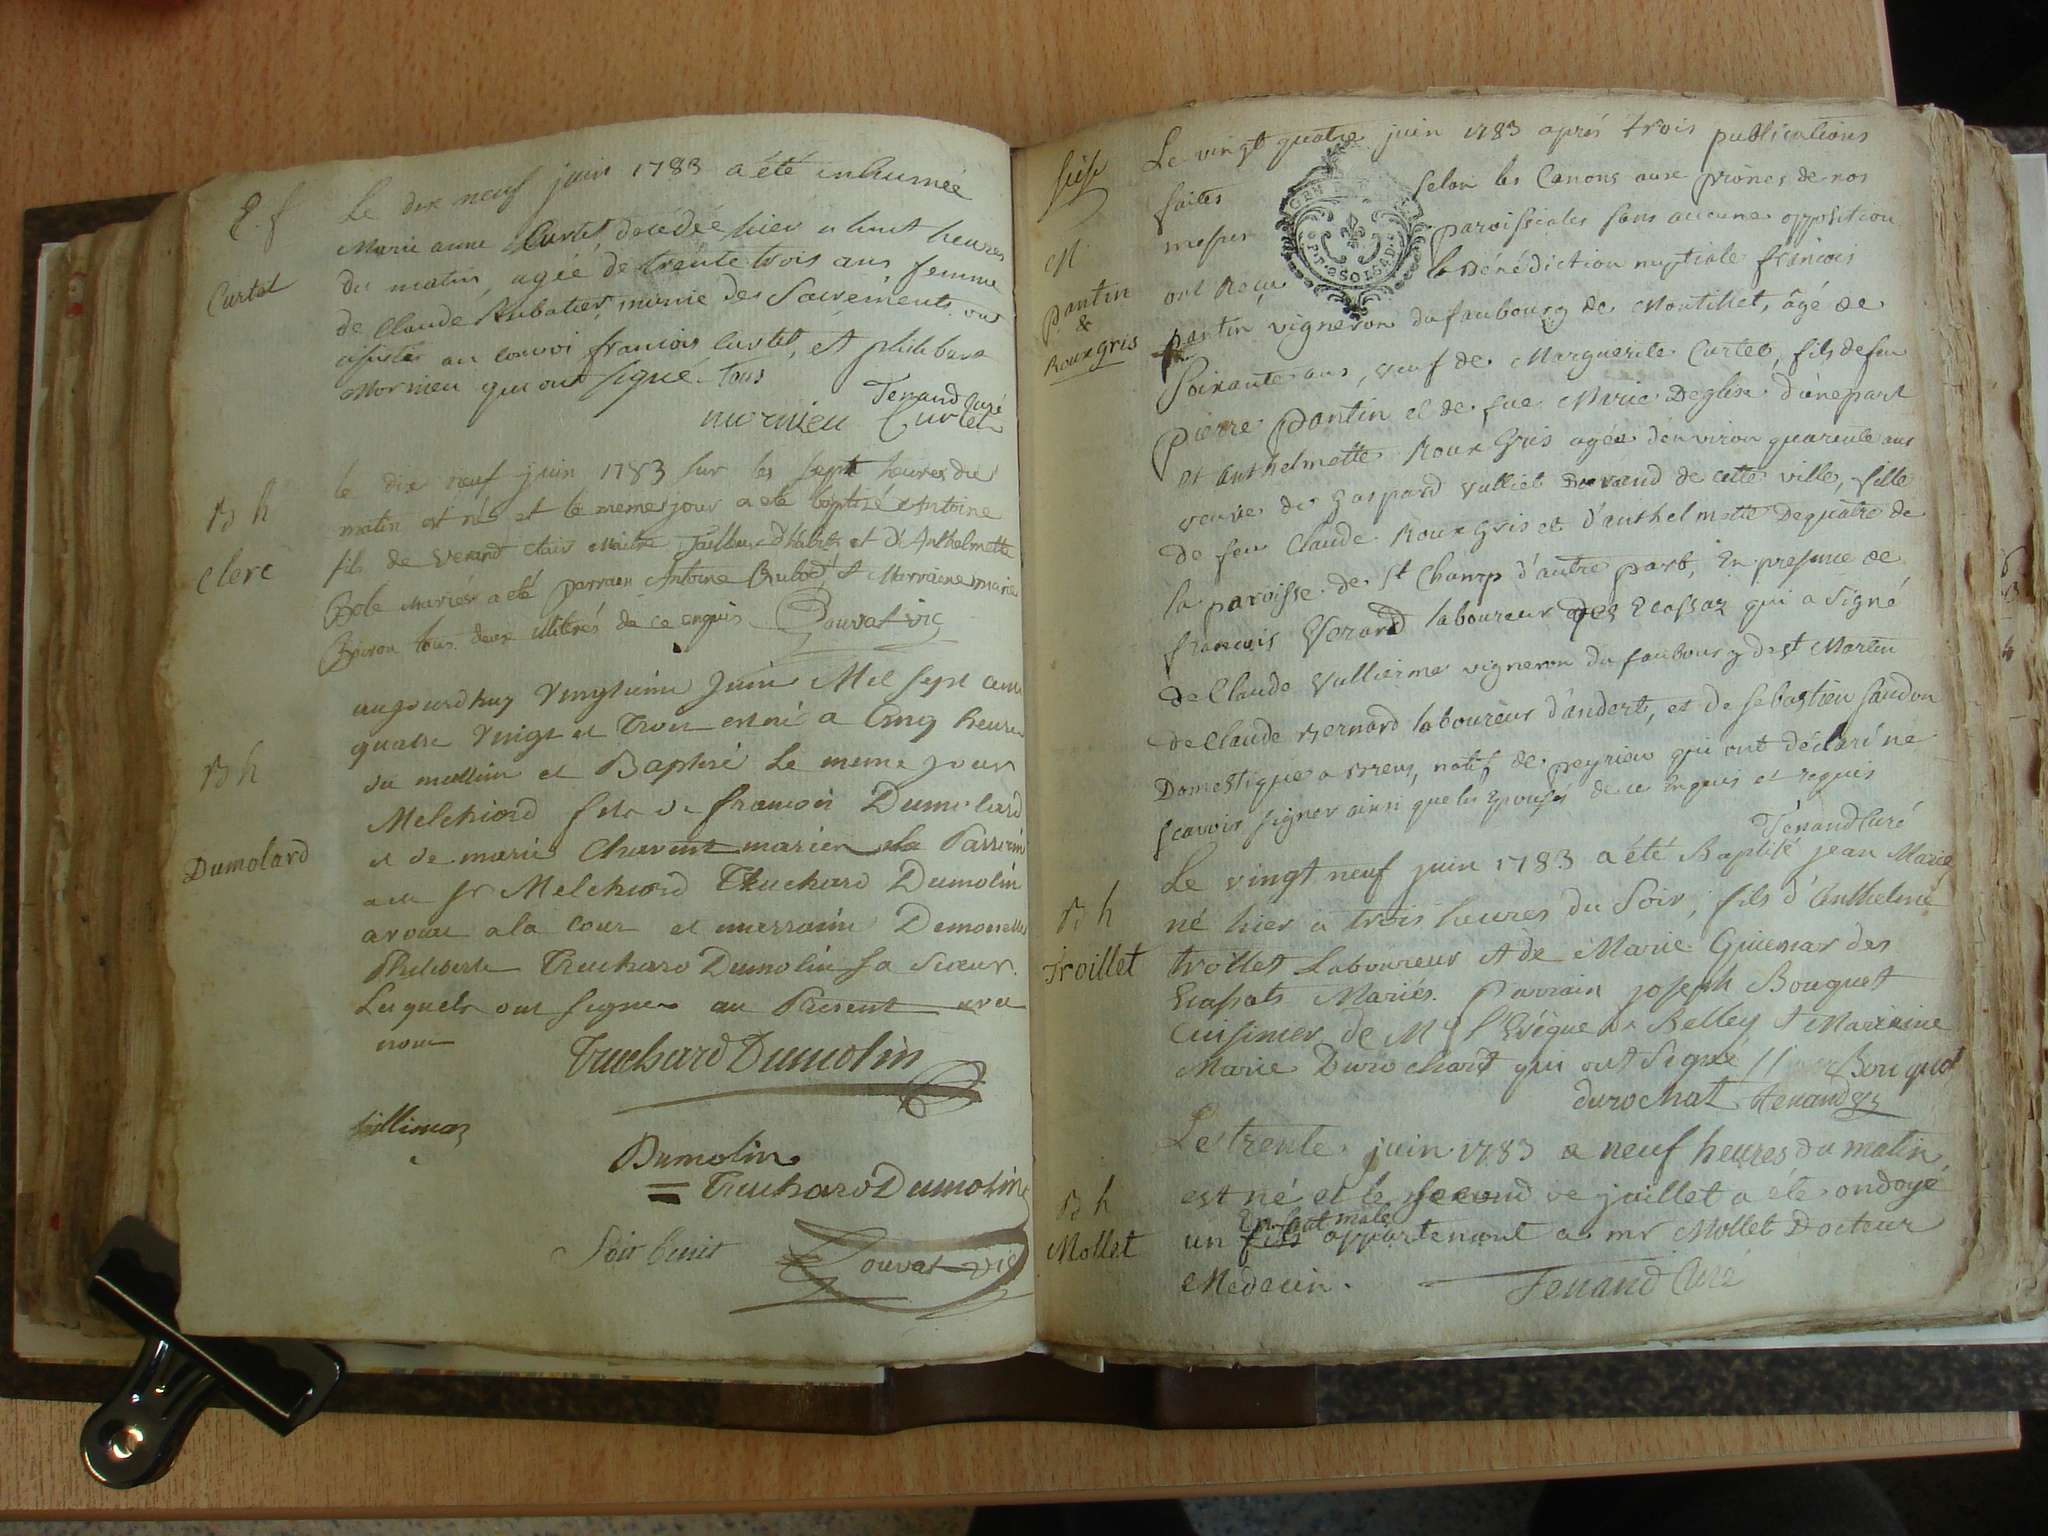 E. f
Curtet
Le dix neuf juin 1783 a été inhumée
Marie anne Curtet décédée hier a huit heures
du matin, agée de trente trois ans, femme
de Claude Rubatier, munie des Sacrements. ont
assistés au convoi francois Curtet, et philibert
Mornieu qui ont signé. tous
Tenand Curé
mornieu Curtet
B h
Clerc
le dix neuf juin 1783 sur les sept heures du
matin est né et le meme jour a eté baptisé Antoine
fils de Verand Clair Maitre Tailleur d'habits et d'Anthelmette
Bole Mariés a eté parrain Antoine et Marraine marie
Boiron tous deux illiterés de ce enquis. Bouvat vic
B h
Dumolard
aujourdhuy vingtieme Juin Mil sept cent
quatre vingt et Trois est né a Cinq heures
du mattin et Baptisé le meme jour
Melchiord fils de francois Dumolard
et de marie Charvent mariés le Parrein
a eté Sr Melchiord Truchard Dumolin
avocat a la cour et merrainne Demoiselle
Philiberte Truchard Dumolin sa Sœur.
Lesquels ont signer au Présent avec
nous
Truchard Dumolin
Dumolin
= Truchard Dumolin
Soit benit Bouvat vic
M
pantin
&
Rouxgris
Le vingt quatre juin 1783 aprés trois publications
faites selon les Canons aux prônes de nos
messes paroissiales sans aucune opposition
ont Reçu la Bénédiction nuptiale françois
pantin vigneron du faubourg de Montillet, âgé de
Soixante ans, veuf de Marguerite Curtet, fils de feu
pierre pantin et de fue Marie Deglise d'une part
et anthelmette Roux Gris agée d'environ quarente ans
veuve de Gaspard Vulliet de cette ville, fille
de feu Claude Roux Gris et d'anthelmette Dequatre de
la paroisse de St Champ d'autre part, En presence de
françois Verard laboureur des Ecassaz qui a signé
de Claude Vullierme vigneron du faubourg de st Martin
de Claude Bernard laboureur d'andert, et de sebastien sandon
Domestique a Brens, natif de peyrieu qui ont déclaré ne
scavoir signer ainsi que les Epousés de ce Enquis et requis
Tenand Curé
B h
Troillet
Le vingt neuf juin 1783 a été Baptisé jean Marie
né hier à trois heures du Soir, fils d'Anthelme
trollet Laboureur et de Marie Guiemar des
Ecassats Mariés. Parrain joseph Bouquet
Cuisinier de Mgr l'Evêque de Belley et Marraine
Marie Durochart qui ont Signé Bouquet
durochat tenand
B h
Mollet
Le trente juin 1783 a neuf heures du matin
est né et le second de juillet a été ondoyé
Enfant male
un fils appartenant a mr Mollet Docteur
Médecin.
Tenand Curé